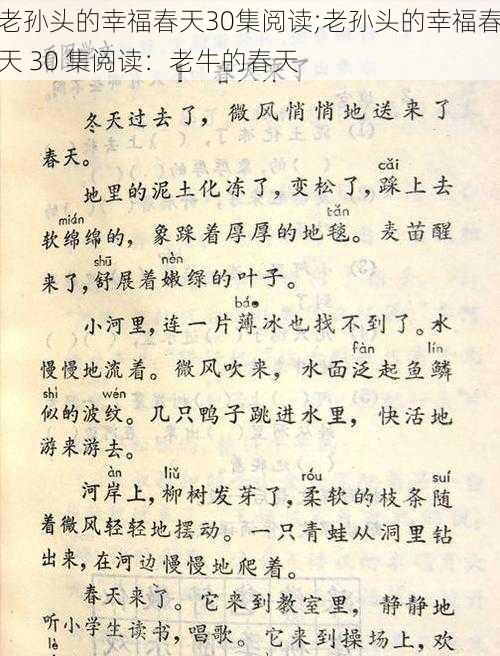 老孙头的幸福春天30集阅读;老孙头的幸福春
天 30 集阅读：老牛的春天
春天来了
冬天过去了，微风悄悄地送来了
春天。
cǎi
地里的泥土化冻了，变松了，踩上去
mián tǎn
软绵绵的，象踩着厚厚的地毯。麦苗醒
shū nèn
来了，舒展着嫩绿的叶子。
báo
小河里，连一片薄冰也找不到了。水
fàn lín
慢慢地流着。微风吹来，水面泛起鱼鳞
shì wén
似的波纹。几只鸭子跳进水里，快活地
游来游去。
àn liǔ róu suí
河岸上，柳树发芽了，柔软的枝条随
着微风轻轻地摆动。一只青蛙从洞里钻
出来，在河边慢慢地爬着。
春天来了。它来到教室里，静静地
听小学生读书，唱歌。它来到操场上，欢